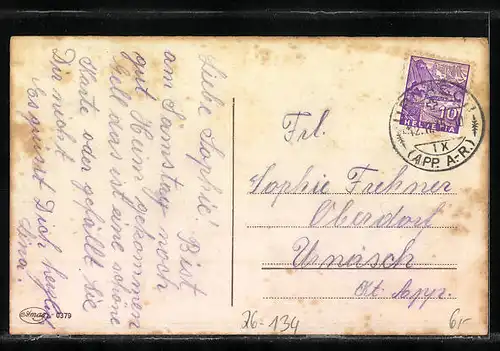 Liebe Sophie! Bist
am Samstag noch
gut Heim gekommen
Gell das ist eine schöne
Karte oder gefällt Sie
Dir nicht
Es grüsst Dich herzlich
Lina.
Amag 0379
Frl.
Sophie Frehner
Oberdorf
Urnäsch
Kt. App.
10
HELVETIA
IX
(APP. A-R.)
26-134
6.-